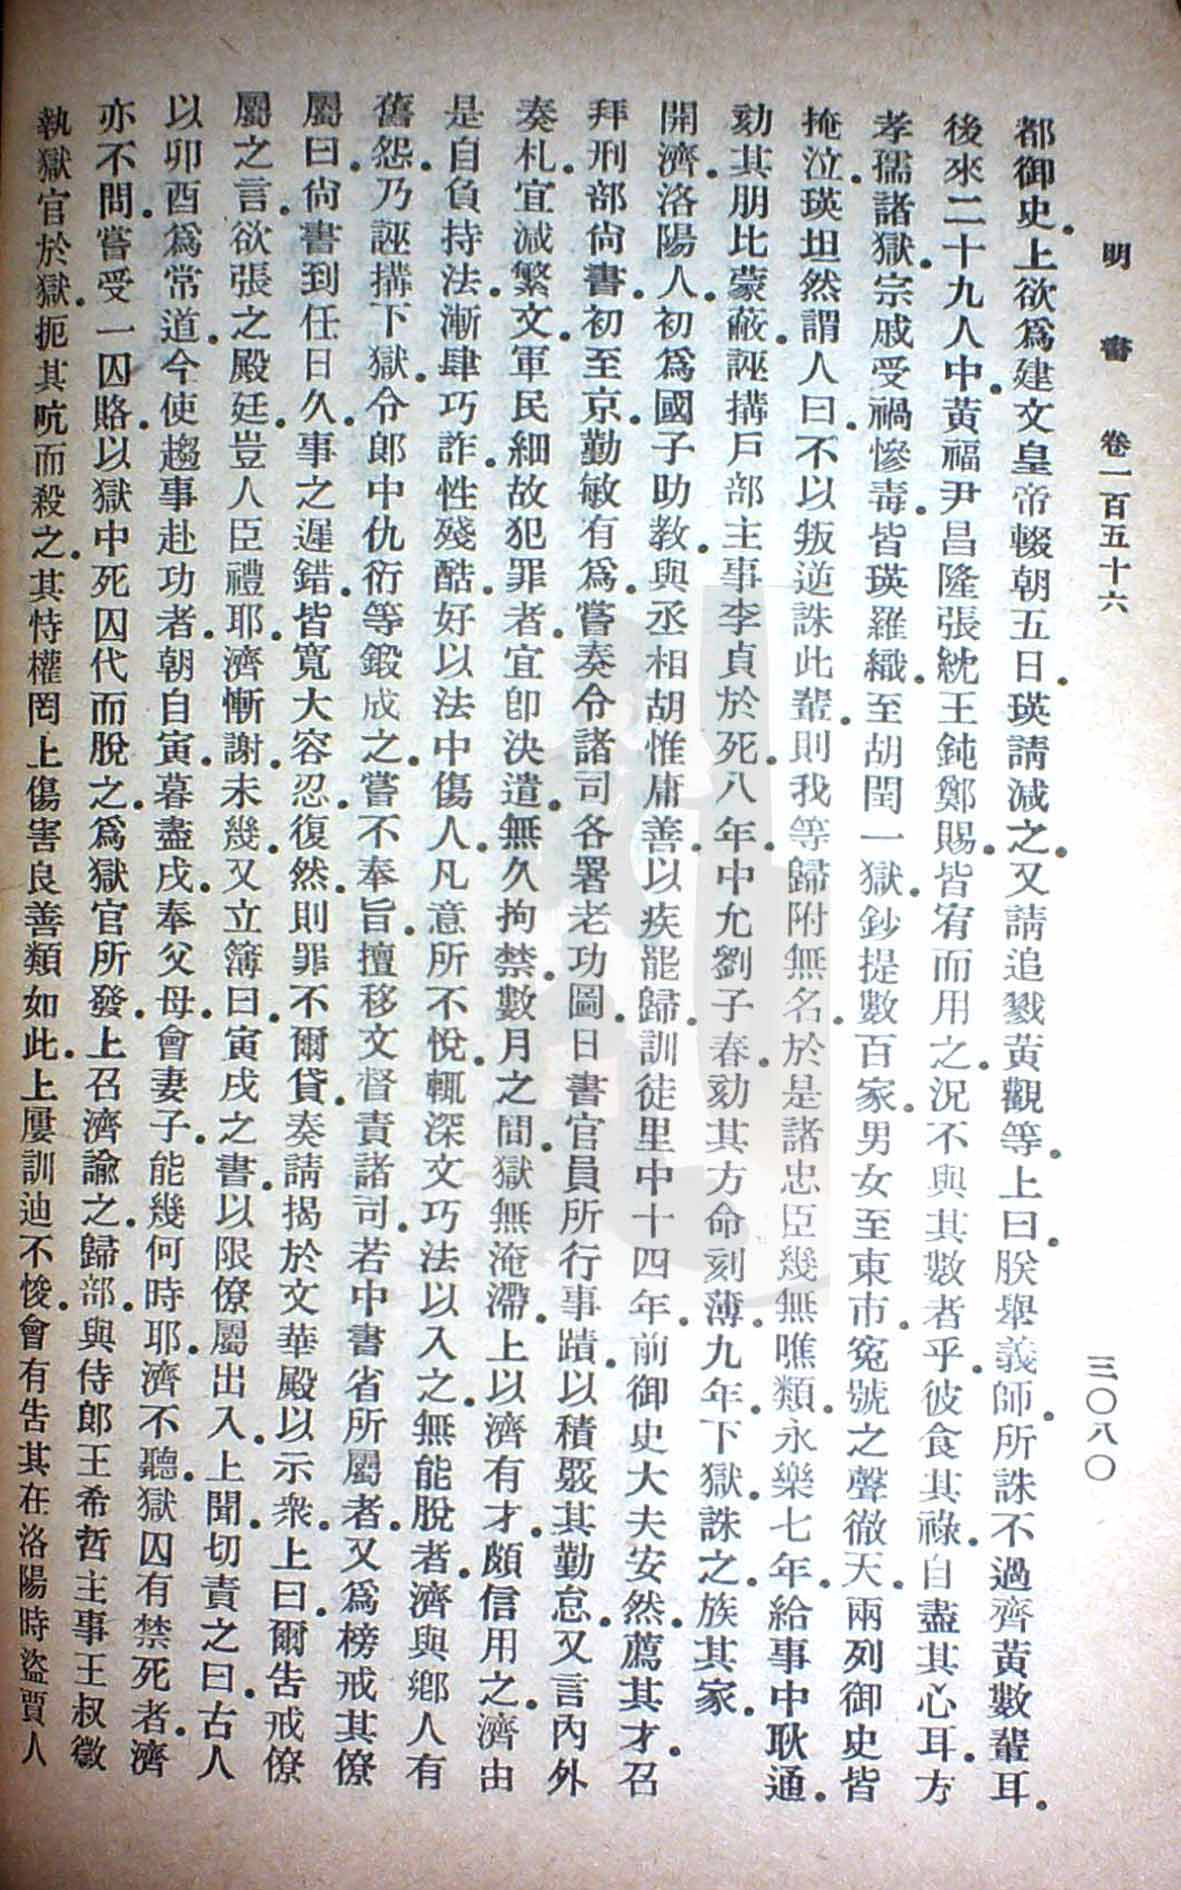 明書 卷一百五十六 三〇八〇
都御史。上欲爲建文皇帝輟朝五日。瑛請減之。又請追戮黃觀等。上曰。朕舉義師。所誅不過齊黃數輩耳。
後來二十九人中。黃福尹昌隆張紞王鈍鄭賜。皆宥而用之。況不與其數者乎。彼食其祿。自盡其心耳。方
孝孺諸獄。宗戚受禍慘毒。皆瑛羅織。至胡閏一獄。鈔提數百家。男女至東市。冤號之聲徹天。兩列御史皆
掩泣。瑛坦然謂人曰。不以叛逆誅此輩。則我等歸附無名。於是諸忠臣幾無噍類。永樂七年。給事中耿通。
劾其朋比蒙蔽。誣搆戶部主事李貞於死。八年。中允劉子春。劾其方命刻薄。九年。下獄。誅之。族其家。
開濟。洛陽人。初爲國子助教。與丞相胡惟庸善。以疾罷歸。訓徒里中。十四年。前御史大夫安然。薦其才。召
拜刑部尙書。初至京。勤敏有爲。嘗奏令諸司各署老功圖。日書官員所行事蹟。以積竅其勤怠。又言內外
奏札。宜減繁文。軍民細故犯罪者。宜卽決遣。無久拘禁。數月之間。獄無淹滯。上以濟有才。頗信用之。濟由
是自負持法。漸肆巧詐。性殘酷。好以法中傷人。凡意所不悅。輒深文巧法以入之。無能脫者。濟與鄕人有
舊怨。乃誣搆下獄。令郞中仇衍等鍛成之。嘗不奉旨。擅移文督責諸司。若中書省所屬者。又爲榜戒其僚
屬曰。尙書到任日久。事之遲錯。皆寬大容忍。復然。則罪不爾貸。奏請揭於文華殿以示衆。上曰。爾告戒僚
屬之言。欲張之殿廷。豈人臣禮耶。濟慚謝。未幾。又立簿曰寅戌之書。以限僚屬出入。上聞。切責之曰。古人
以卯酉爲常道。今使趨事赴功者。朝自寅。暮盡戌。奉父母。會妻子。能幾何時耶。濟不聽。獄囚有禁死者。濟
亦不問。嘗受一囚賂。以獄中死囚代而脫之。爲獄官所發。上召濟諭之。歸部。與侍郎王希哲主事王叔徵
執獄官於獄。扼其吭而殺之。其恃權罔上。傷害良善類如此。上屢訓迪不悛。會有告其在洛陽時盜賈人